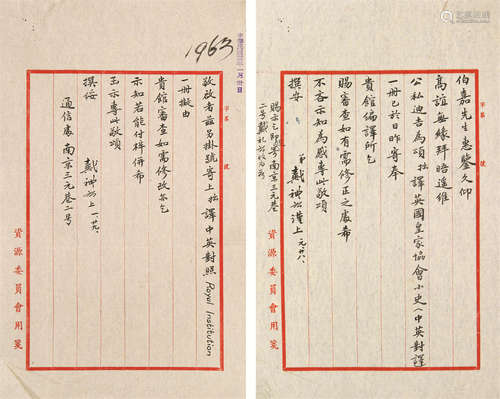 伯嘉先生惠鑒久仰
高誼無緣拜晤遥維
公私迪吉為頌拙譯英國皇家協會小史（中英對譯
一冊已於日昨寄奉
貴館編譯所乞
賜審查如有需修正之處希
不吝示知為感專此敬頌
撰安
弟戴神公謹上 元廿八、
賜示乞
南京三元巷
二号戴
字第 號
資源委員會用箋
1963
一月
敬啟者茲另掛號寄上拙譯中英對照 Royal Institution
一冊擬由
貴館審查如需修改亦乞
示知若能付梓併希
玉示專此敬頌
撰綏
戴神公上 一、廿九、
通信處南京三元巷二号
字第 號
資源委員會用箋